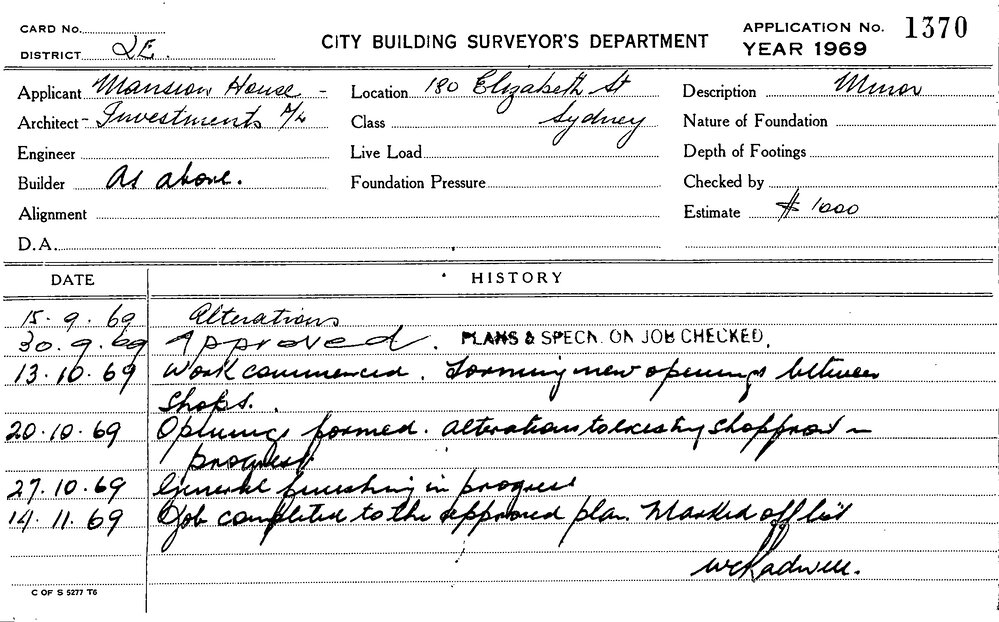 CARD No.
DISTRICT 2E.
CITY BUILDING SURVEYOR'S DEPARTMENT
APPLICATION No. 1370
YEAR 1969
Applicant Mansion House -
Architect - Investments P/L
Engineer
Builder As above.
Alignment
D.A.
Location 180 Elizabeth St
Class Sydney
Live Load
Foundation Pressure
Description Minor
Nature of Foundation
Depth of Footings
Checked by
Estimate $ 1000
DATE HISTORY
15.9.69 Alterations
30.9.69 Approved. PLANS & SPECN. ON JOB CHECKED.
13.10.69 Work commenced. Forming new openings between
Shops.
20.10.69 Openings formed. Alterations to existing shopfront in
progress.
27.10.69 General finishing in progress
14.11.69 Job completed to the approved plan. Marked off list
C OF S 5277 T6